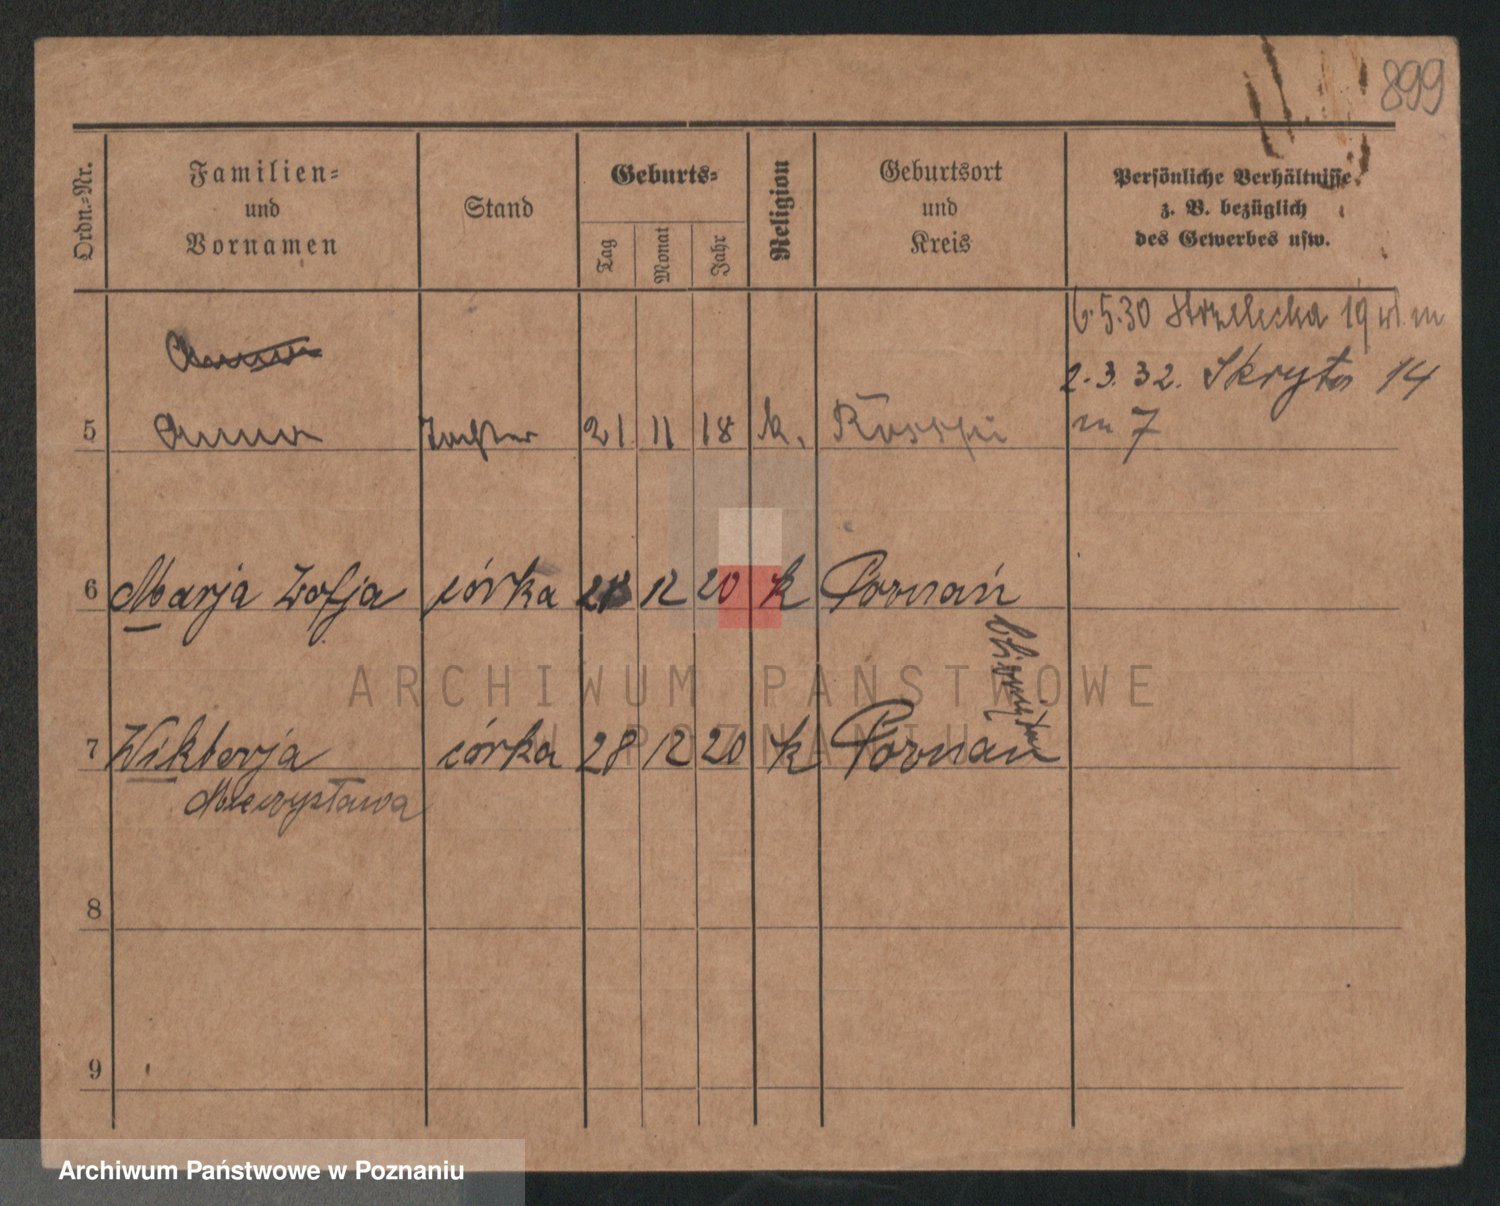 899
Ordn.-Nr.
Familien-
und
Vornamen
Stand
Geburts-
Tag
Monat
Jahr
Religion
Geburtsort
und
Kreis
Persönliche Verhältnisse
z. B. bezüglich
des Gewerbes usw.
6.5.30 Strzelecka 19 m
2.3.32. Skryta 14
m 7
Anna
5 Anna Tochter 21 11 18 k.
6 Marja Zofja córka 28 12 20 k Poznań
7 Wiktorja córka 28 12 20 k Poznań
Mieczysława
8
9
ARCHIWUM PAŃSTWOWE
W POZNANIU
Archiwum Państwowe w Poznaniu